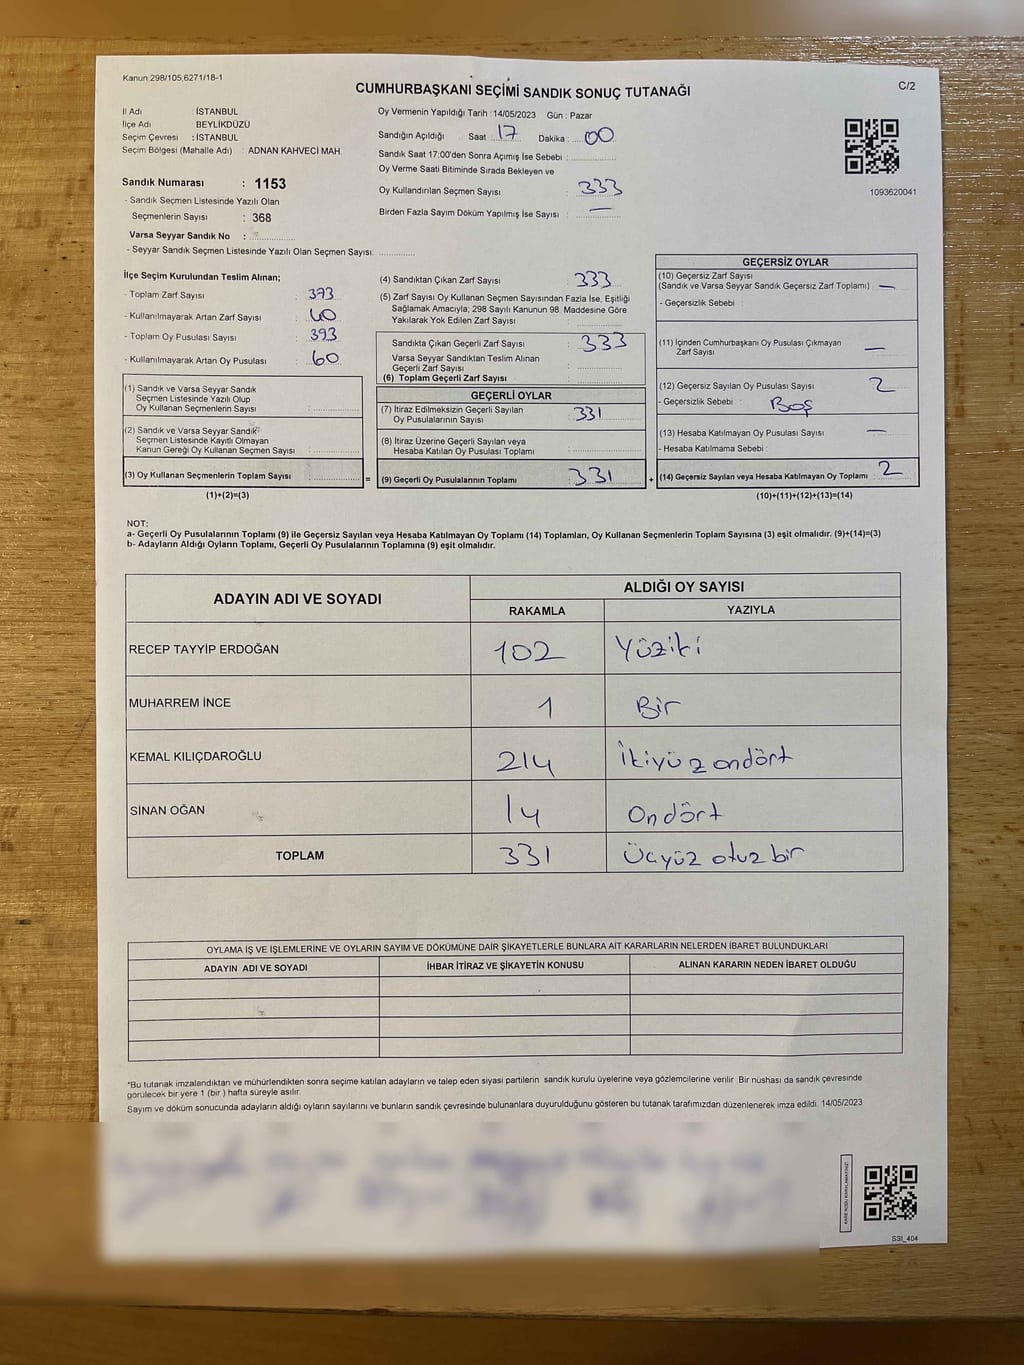 Kanun 298/105,6271/18-1
C/2
CUMHURBAŞKANI SEÇİMİ SANDIK SONUÇ TUTANAĞI
İl Adı : İSTANBUL
İlçe Adı : BEYLİKDÜZÜ
Seçim Çevresi : İSTANBUL
Seçim Bölgesi (Mahalle Adı) : ADNAN KAHVECİ MAH.
Sandık Numarası : 1153
- Sandık Seçmen Listesinde Yazılı Olan
Seçmenlerin Sayısı : 368
Varsa Seyyar Sandık No :
- Seyyar Sandık Seçmen Listesinde Yazılı Olan Seçmen Sayısı:
Oy Vermenin Yapıldığı Tarih : 14/05/2023 Gün : Pazar
Sandığın Açıldığı Saat : 17 Dakika : 00
Sandık Saat 17:00'den Sonra Açımış İse Sebebi :
Oy Verme Saati Bitiminde Sırada Bekleyen ve
Oy Kullandırılan Seçmen Sayısı : 333
Birden Fazla Sayım Döküm Yapılmış İse Sayısı : —
1093620041
İlçe Seçim Kurulundan Teslim Alınan;
- Toplam Zarf Sayısı : 373
- Kullanılmayarak Artan Zarf Sayısı : 40
- Toplam Oy Pusulası Sayısı : 393
- Kullanılmayarak Artan Oy Pusulası : 60
(1) Sandık ve Varsa Seyyar Sandık
Seçmen Listesinde Yazılı Olup
Oy Kullanan Seçmenlerin Sayısı :
(2) Sandık ve Varsa Seyyar Sandık
Seçmen Listesinde Kayıtlı Olmayan
Kanun Gereği Oy Kullanan Seçmen Sayısı :
(3) Oy Kullanan Seçmenlerin Toplam Sayısı :
(1)+(2)=(3)
(4) Sandıktan Çıkan Zarf Sayısı : 333
(5) Zarf Sayısı Oy Kullanan Seçmen Sayısından Fazla İse, Eşitliği
Sağlamak Amacıyla; 298 Sayılı Kanunun 98. Maddesine Göre
Yakılarak Yok Edilen Zarf Sayısı :
Sandıkta Çıkan Geçerli Zarf Sayısı : 333
Varsa Seyyar Sandıktan Teslim Alınan
Geçerli Zarf Sayısı :
(6) Toplam Geçerli Zarf Sayısı :
GEÇERLİ OYLAR
(7) İtiraz Edilmeksizin Geçerli Sayılan
Oy Pusulalarının Sayısı : 331
(8) İtiraz Üzerine Geçerli Sayılan veya
Hesaba Katılan Oy Pusulası Toplamı :
= (9) Geçerli Oy Pusulalarının Toplamı : 331 +
GEÇERSİZ OYLAR
(10) Geçersiz Zarf Sayısı
(Sandık ve Varsa Seyyar Sandık Geçersiz Zarf Toplamı) : —
- Geçersizlik Sebebi :
(11) İçinden Cumhurbaşkanı Oy Pusulası Çıkmayan
Zarf Sayısı : —
(12) Geçersiz Sayılan Oy Pusulası Sayısı : 2
- Geçersizlik Sebebi : Boş
(13) Hesaba Katılmayan Oy Pusulası Sayısı : —
- Hesaba Katılmama Sebebi :
(14) Geçersiz Sayılan veya Hesaba Katılmayan Oy Toplamı : 2
(10)+(11)+(12)+(13)=(14)
NOT:
a- Geçerli Oy Pusulalarının Toplamı (9) ile Geçersiz Sayılan veya Hesaba Katılmayan Oy Toplamı (14) Toplamları, Oy Kullanan Seçmenlerin Toplam Sayısına (3) eşit olmalıdır. (9)+(14)=(3)
b- Adayların Aldığı Oyların Toplamı, Geçerli Oy Pusulalarının Toplamına (9) eşit olmalıdır.
ADAYIN ADI VE SOYADI
ALDIĞI OY SAYISI
RAKAMLA YAZIYLA
RECEP TAYYİP ERDOĞAN 102 Yüziki
MUHARREM İNCE 1 Bir
KEMAL KILIÇDAROĞLU 214 İkiyüzondört
SİNAN OĞAN 14 Ondört
TOPLAM 331 Üçyüz otuz bir
OYLAMA İŞ VE İŞLEMLERİNE VE OYLARIN SAYIM VE DÖKÜMÜNE DAİR ŞİKAYETLERLE BUNLARA AİT KARARLARIN NELERDEN İBARET BULUNDUKLARI
ADAYIN ADI VE SOYADI İHBAR İTİRAZ VE ŞİKAYETİN KONUSU ALINAN KARARIN NEDEN İBARET OLDUĞU
*Bu tutanak imzalandıktan ve mühürlendikten sonra seçime katılan adayların ve talep eden siyasi partilerin sandık kurulu üyelerine veya gözlemcilerine verilir. Bir nüshası da sandık çevresinde
görülecek bir yere 1 (bir ) hafta süreyle asılır.
Sayım ve döküm sonucunda adayların aldığı oyların sayılarını ve bunların sandık çevresinde bulunanlara duyurulduğunu gösteren bu tutanak tarafımızdan düzenlenerek imza edildi. 14/05/2023
SSI_404